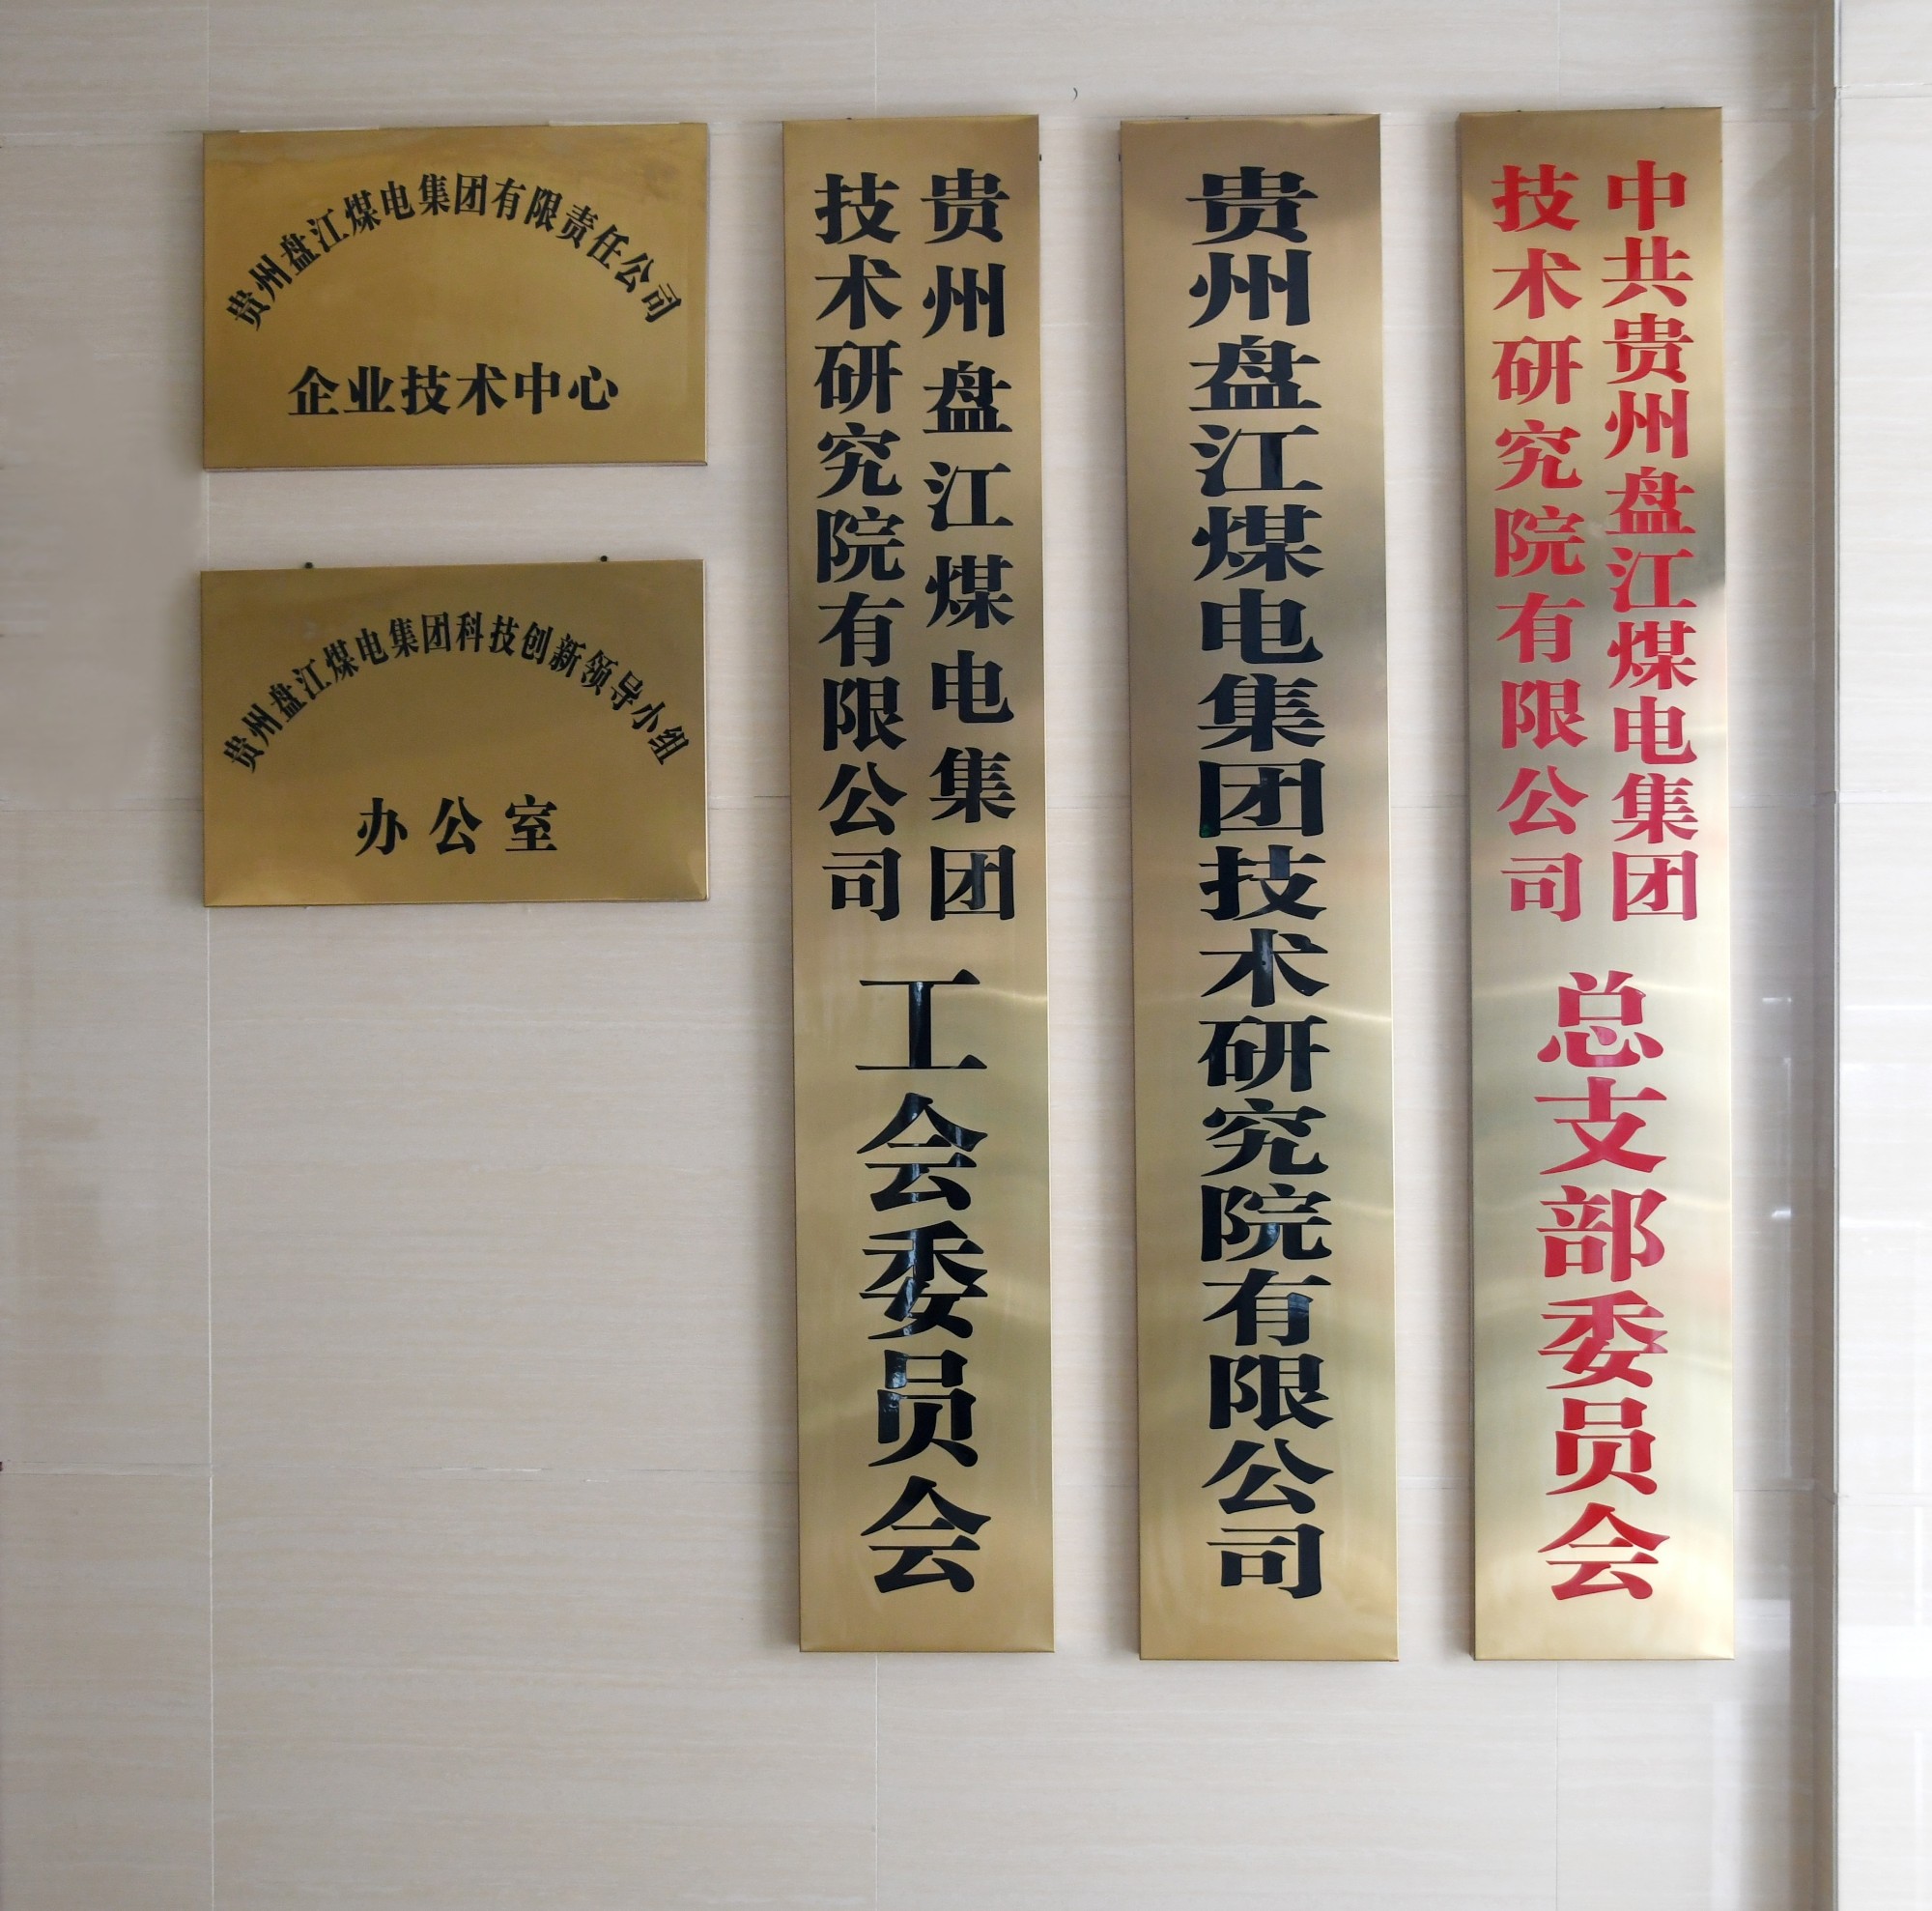 贵州盘江煤电集团有限责任公司
企业技术中心
贵州盘江煤电集团科技创新领导小组
办公室
贵州盘江煤电集团
技术研究院有限公司
工会委员会
贵州盘江煤电集团技术研究院有限公司
中共贵州盘江煤电集团
技术研究院有限公司
总支部委员会